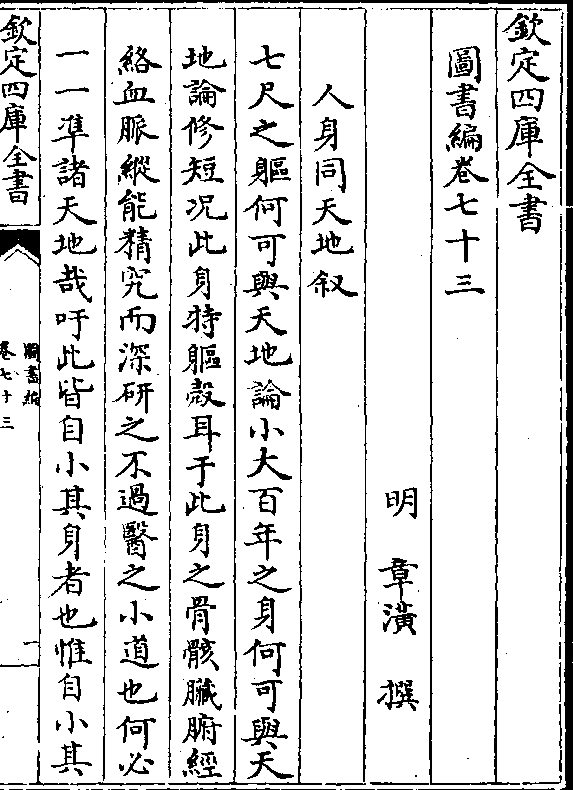 欽定四庫全書
圖書編卷七十三
明 章潢 撰
人身同天地叙
七尺之軀何可與天地論小大百年之身何可與天
地論修短况此身特軀殼耳于此身之骨骸臟腑經
絡血脈縱能精究而深研之不過醫之小道也何必
一一準諸天地哉吁此皆自小其身者也惟自小其
欽定四庫全書
圖書編
卷七十三
一